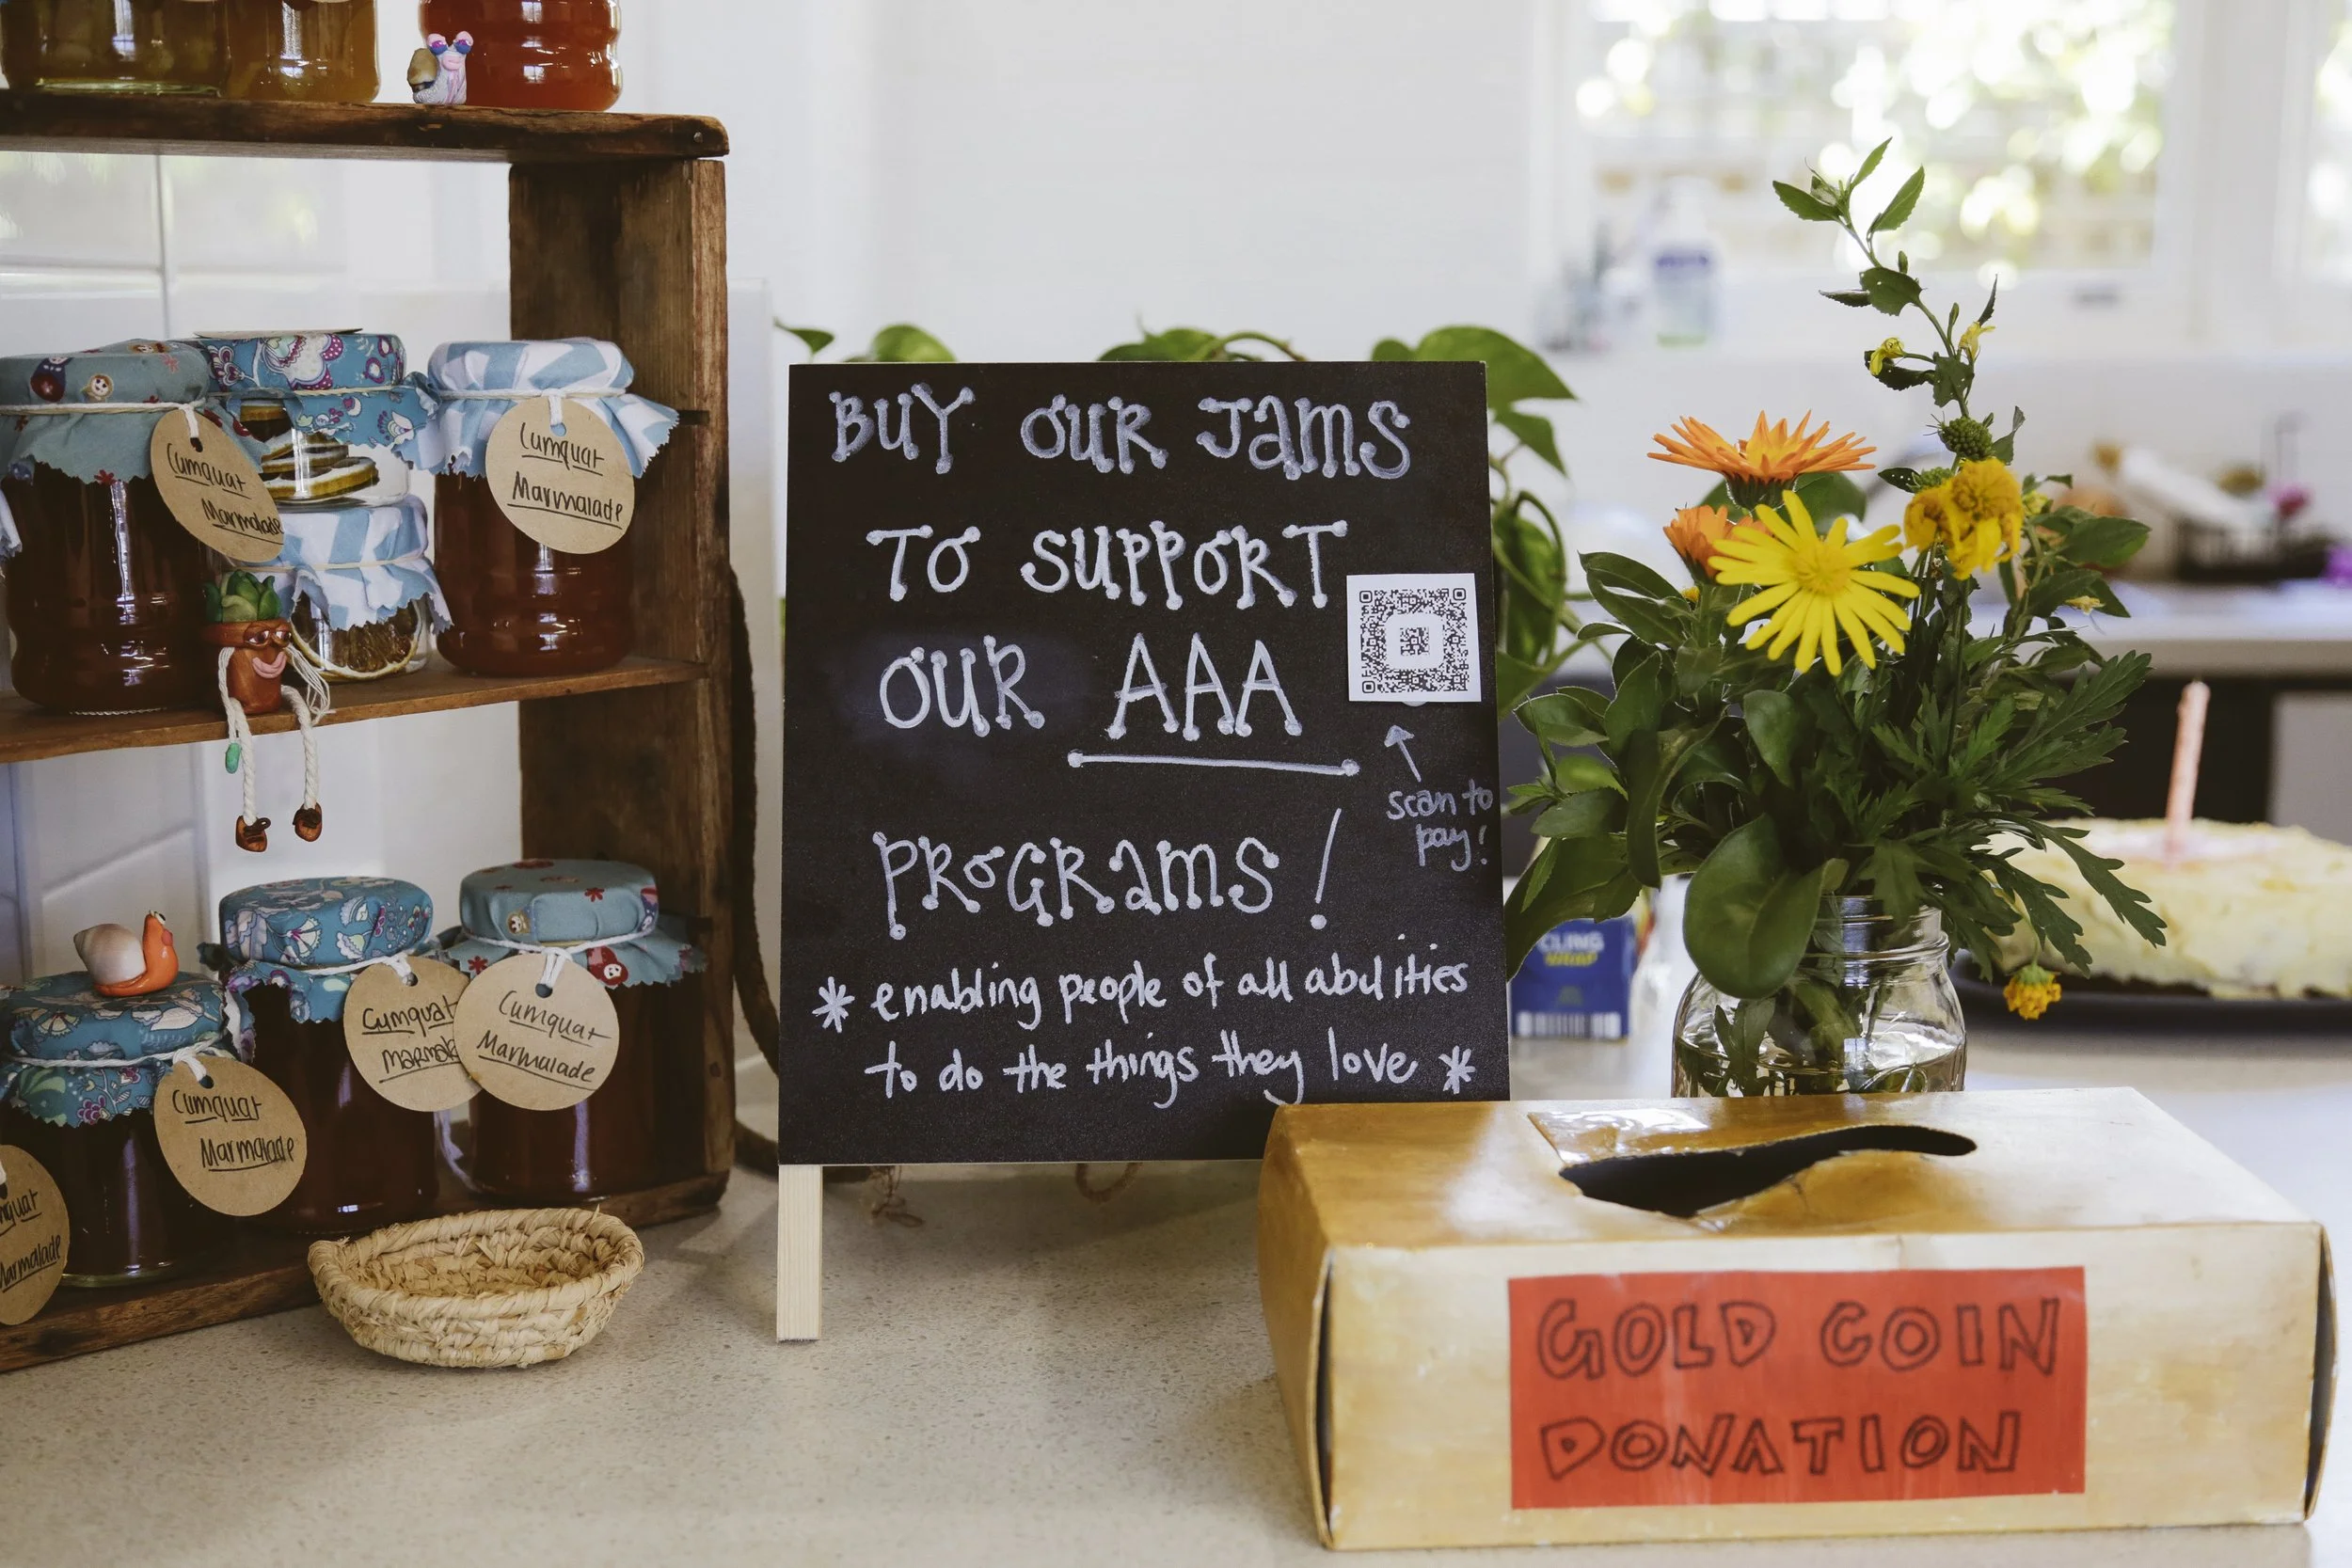 BUY OUR JAMS
TO SUPPORT
OUR AAA
PROGRAMS!
* enabling people of all abilities
to do the things they love *
scan to
pay!
Cumquat
Marmalade
Cumquat
Marmalade
Cumquat
Marmalade
Cumquat
Marmalade
Cumquat
Marmalade
CLING
WRAP
GOLD COIN
DONATION